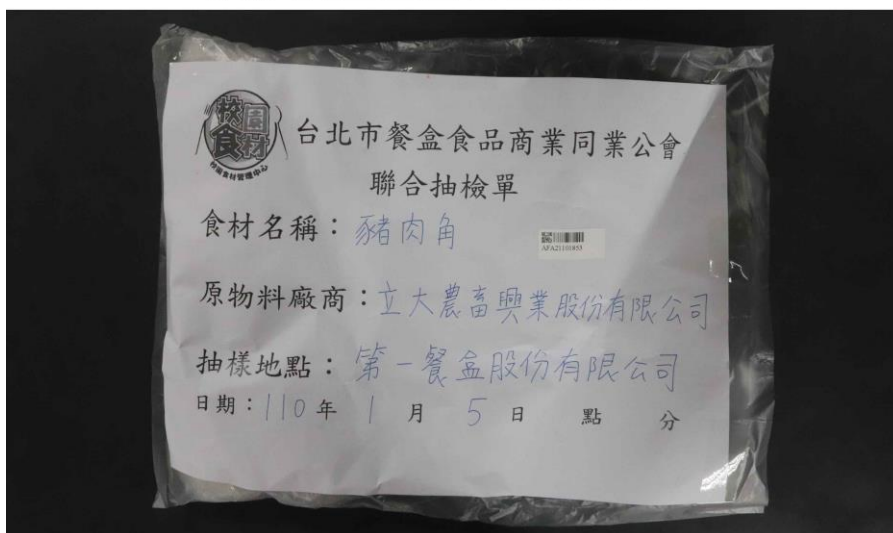 校園食材
校園食材管理中心
台北市餐盒食品商業同業公會
聯合抽檢單
食材名稱：豬肉角
AFA21101853
原物料廠商：立大農畜興業股份有限公司
抽樣地點：第一餐盒股份有限公司
日期：110年 1 月 5 日 點 分